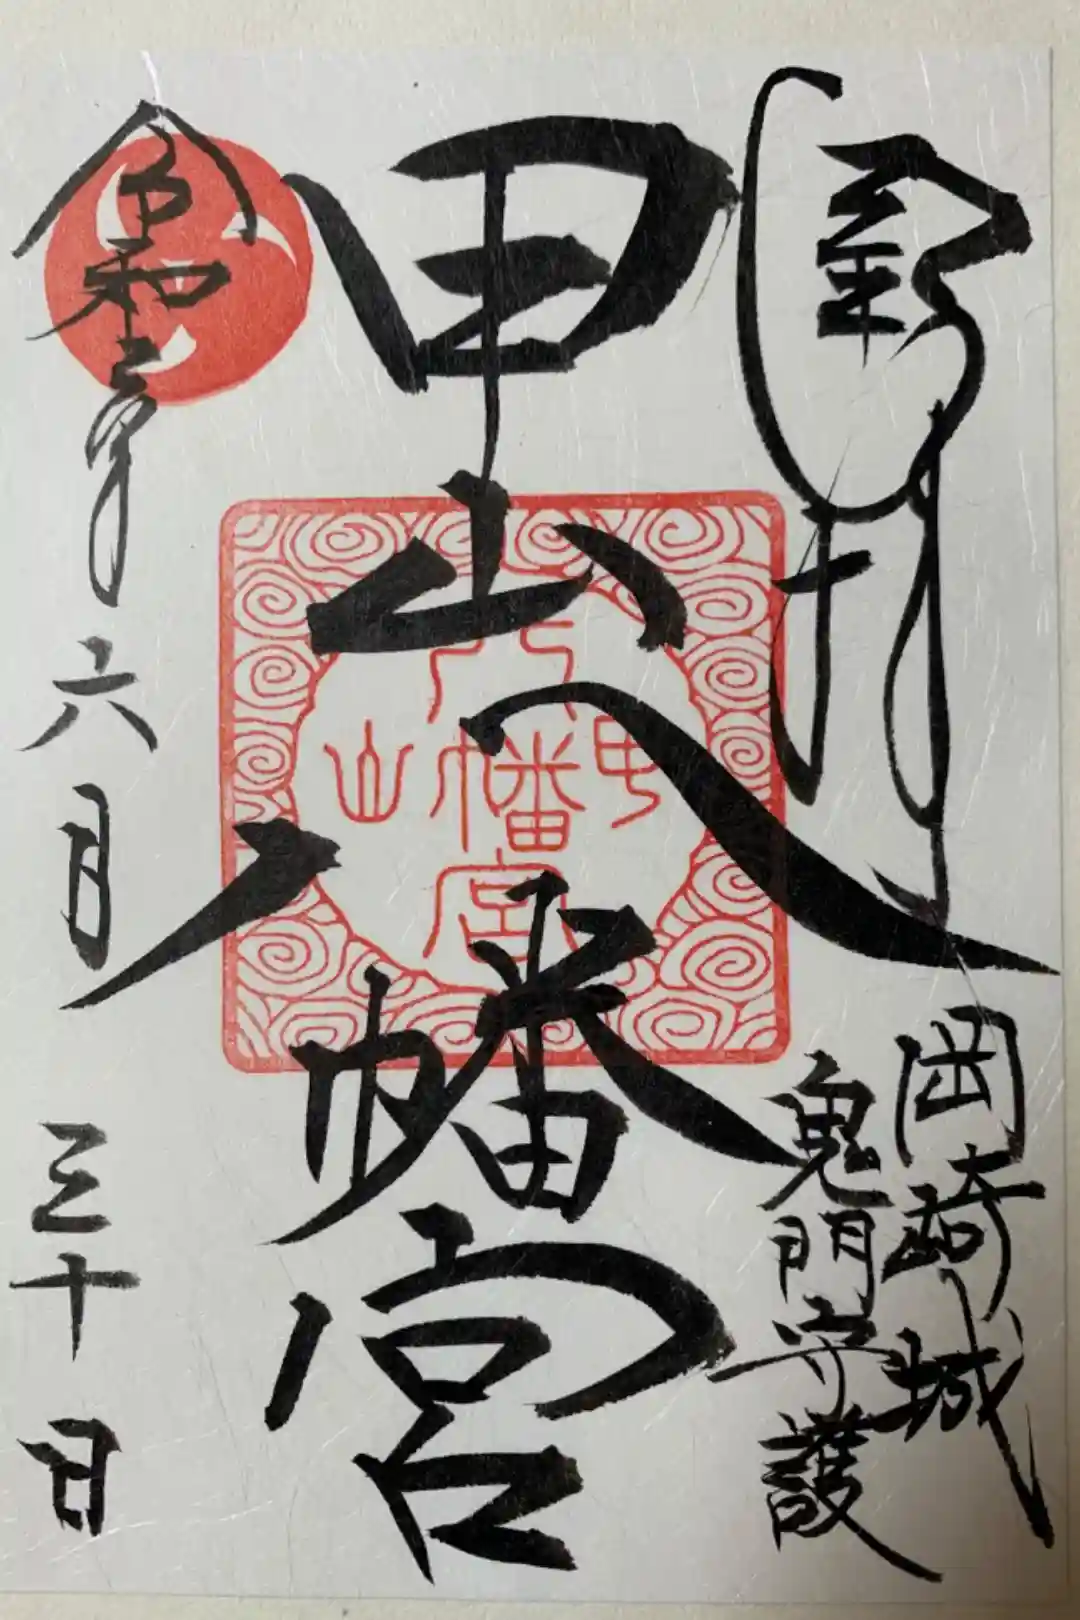 岡崎城
鬼門守護
甲山八幡宮
甲山八幡宮
令和二年六月三十日